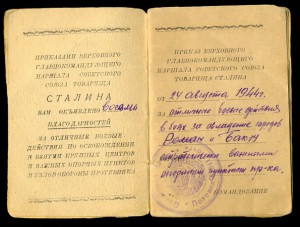 ПРИКАЗАМИ ВЕРХОВНОГО
ГЛАВНОКОМАНДУЮЩЕГО
МАРШАЛА СОВЕТСКОГО
СОЮЗА ТОВАРИЩА
СТАЛИНА
ВАМ ОБЪЯВЛЕНО восемь
БЛАГОДАРНОСТЕЙ
ЗА ОТЛИЧНЫЕ БОЕВЫЕ
ДЕЙСТВИЯ ПО ОСВОБОЖДЕНИЮ
И ВЗЯТИЮ КРУПНЫХ ЦЕНТРОВ
И ВАЖНЫХ ОПОРНЫХ ПУНКТОВ
И УЗЛОВ ОБОРОНЫ ПРОТИВНИКА
ПРИКАЗ ВЕРХОВНОГО
ГЛАВНОКОМАНДУЮЩЕГО
МАРШАЛА СОВЕТСКОГО СОЮЗА
ТОВАРИЩА СТАЛИНА
от 24 августа 1944г.
За отличные боевые действия
в боях за овладение городов
Роман и Бакэу
стратегически важными
опорными пунктами пр-ка.
КОМАНДОВАНИЕ